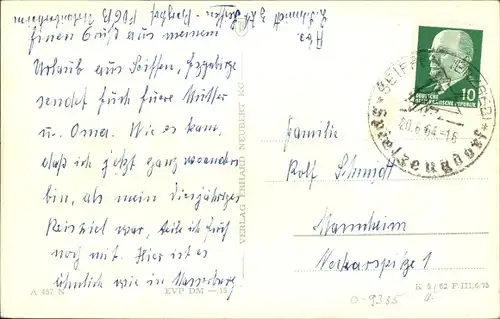 Abs.
Einen Gruß aus meinem
Urlaub aus Seiffen, Erzgebirge
sendet Euch Eure Mutter
u. Oma. Wie es kam,
daß ich jetzt ganz woanders
bin, als mein diesjähriges
Reiseziel war, teile ich Euch
noch mit. Hier ist es
ähnlich wie in Wasserburg
VERLAG ERHARD NEUBERT KG
A 457 N EVP DM —.15
DEUTSCHE
DEMOKRATISCHE REPUBLIK
10
SEIFFEN (ERZGEB)
20.6.64-16
Spielzeugdorf
Familie
Rolf Schmidt
Mannheim
Neckarspitze 1
R 5/62 F III/6/15
0-9335